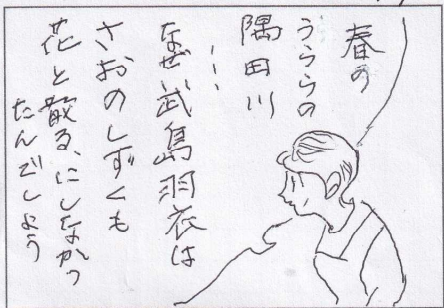 春の
うららの
隅田川
………
なぜ武島羽衣は
さおのしずくも
花と散る、にしなかっ
たんでしょう